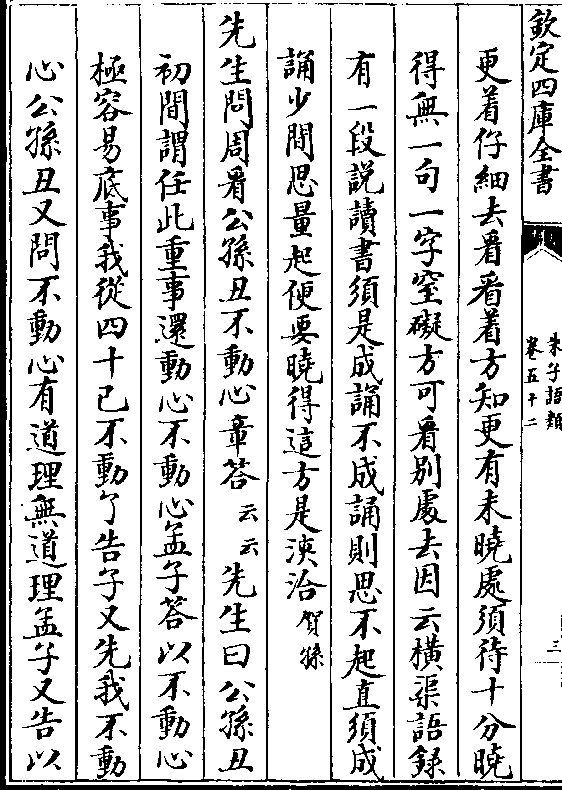 欽定四庫全書
朱子語類
卷五十二
三
更着仔細去看看着方知更有未曉處須待十分曉
得無一句一字窒礙方可看別處去因云橫渠語録
有一段說讀書須是成誦不成誦則思不起直須成
誦少間思量起便要曉得這方是浹洽賀孫
先生問周看公孫丑不動心章答云云先生曰公孫丑
初間謂任此重事還動心不動心孟子答以不動心
極容易底事我從四十已不動了告子又先我不動
心公孫丑又問不動心有道理無道理孟子又告以